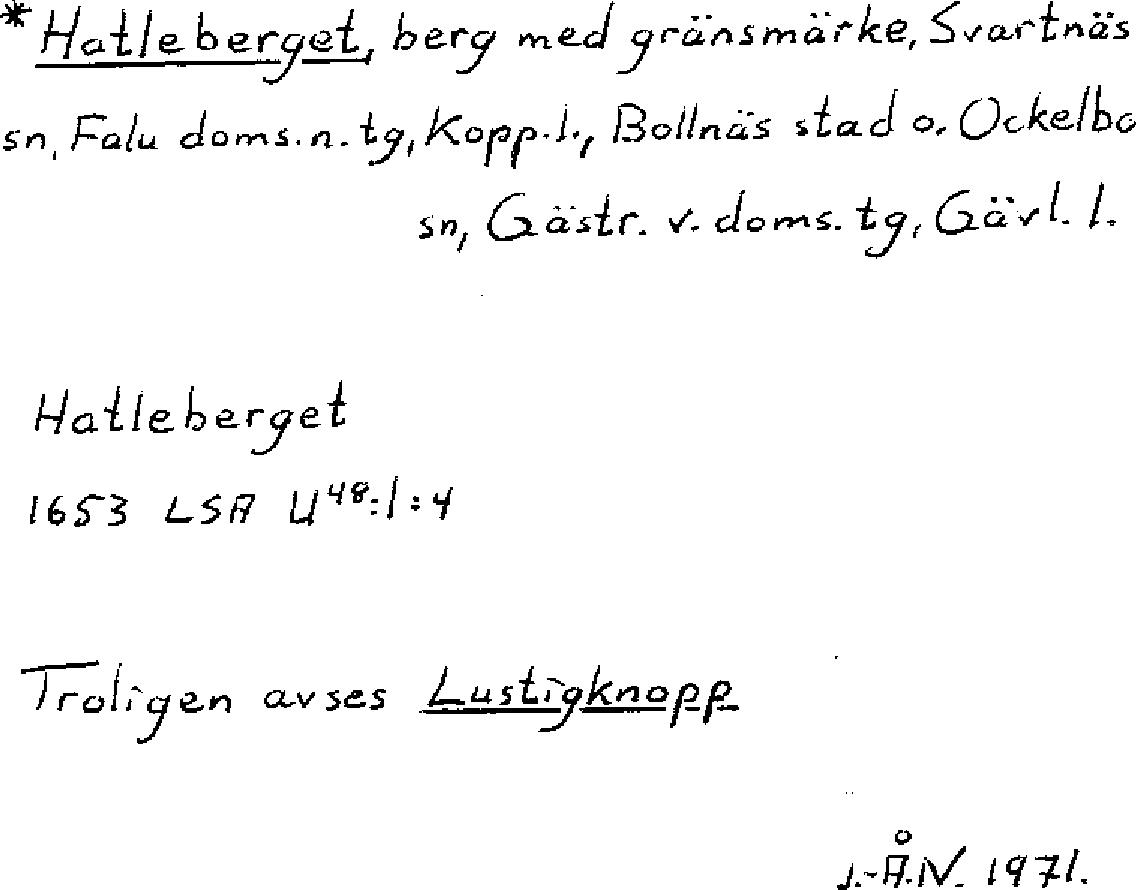 *Hatleberget, berg med gränsmärke, Svartnäs
sn, Falu doms.n.tg, Kopp.l., Bollnäs stad o. Ockelbo
sn, Gästr. v. doms. tg, Gävl. l.
Hatleberget
1653 LSA U48:1:4
Troligen avses Lustigknopp
J.-Å.N. 1971.